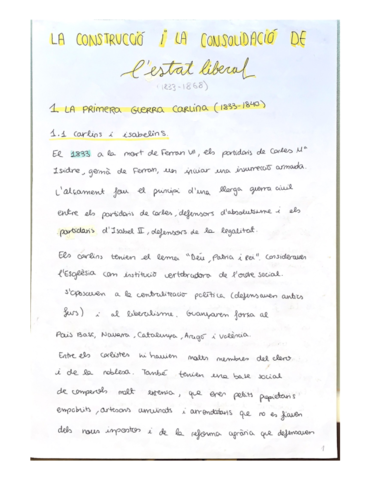 LA CONSTRUCCIÓ i LA CONSOLIDACIÓ DE
l'estat liberal
(1833-1868)
1 LA PRIMERA GUERRA CARLINA (1833-1840)
1.1 carlins i isabelins
El 1833 a la mort de Ferran VII, els partidaris de Carles Mª
Isidre, germà de Ferran, van iniciar una insurrecció armada.
L'alçament fou el principi d'una llarga guerra civil
entre els partidaris de Carles, defensors d'absolutisme i els
partidaris d'Isabel II, defensors de la legalitat.
Els carlins tenien el lema "Déu, Patria i Rei". Consideraven
l'Església com institució vertebradora de l'ordre social.
S'oposaven a la centralització política (defensaven antics
furs) i al liberalisme. Guanyaren força al
País Basc, Navarra, Catalunya, Aragó i València.
Entre els carlistes hi havien molts membres del clero
i de la noblesa. També tenien una base social
de camperols molt extensa, que eren petits propietaris
empobrits, artesans arruinats i arrendataris que no es fiaven
dels nous impostos i de la reforma agrària que defensaven
1